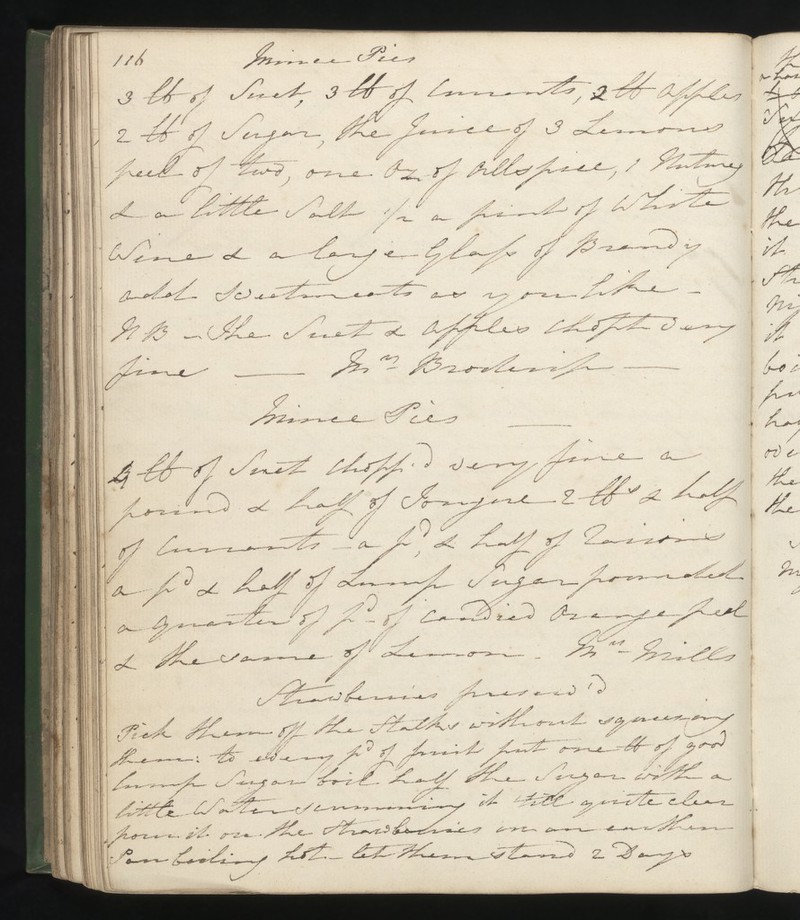 116 Mince Pies
3 lb of Suet, 3 lb of Currants, 2 lb Apples
2 lb of Sugar, the Juice of 3 Lemons
peel of two, one Oz of Allspice, 1 Nutmeg
& a little Salt 1/2 a pint of White
Wine & a large Glass of Brandy
add Sweetmeats as you like -
NB - The Suet & Apples Chopt very
fine — Mrs Broderip —
Mince Pies —
lb of Suet Chopp'd very fine a
pound & half of Tongue 2 lbs & half
of Currants - a pd, & half of Raisins
a pd & half of Lump Sugar pounded
a quarter of pd of Candied Orange peel
& the same of Lemon - Mrs Mills
Strawberries preserv'd
Pick them of the Stalks without squeezing
them: to every pd of fruit put one lb of good
Lump Sugar boil half the Sugar with a
little Water scumming it till quite clear
pour it on the Strawberries in an earthen
Pan boiling hot - let them stand 2 Days